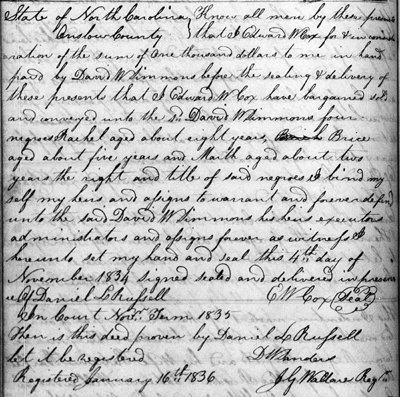 State of North Carolina } Know all men by these presents
Onslow County } that I Edward W Cox for & in consid
eration of the sum of one thousand dollars to me in hand
paid by David W Simmons before the sealing & delivery of
these presents that I Edward W Cox have bargained sold
and conveyed unto the sd David W Simmons four
negroes Rachel aged about eight years, Brice
aged about five years and Mariah aged about two
years the right and title of said negroes I bind my
self my heirs and assigns to warrant and forever defend
unto the said David W Simmons his heirs executors
administrators and assigns forever as witness I
hereunto set my hand and seal this 4th day of
November 1834 signed sealed and delivered in presence
of Daniel L Russell E W Cox (Seal)
In Court Novr. Term 1835
Then is this deed proven by Daniel L Russell
let it be registered D W Sanders
Registered January 16th 1836 J G Wallace Regtr